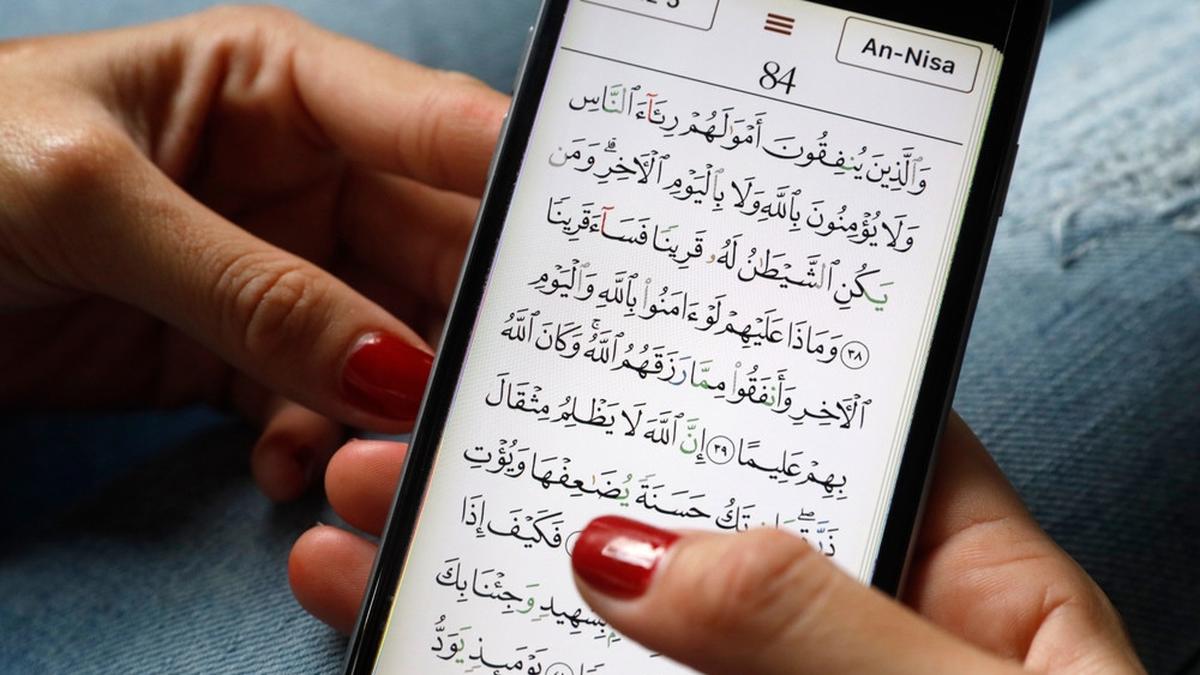 An-Nisa
84
وَٱلَّذِينَ يُنفِقُونَ أَمْوَٰلَهُمْ رِئَآءَ ٱلنَّاسِ
وَلَا يُؤْمِنُونَ بِٱللَّهِ وَلَا بِٱلْيَوْمِ ٱلْأَخِرِ ۗ وَمَن
يَكُنِ ٱلشَّيْطَٰنُ لَهُۥ قَرِينًا فَسَآءَ قَرِينًا
٣٨ وَمَاذَا عَلَيْهِمْ لَوْ ءَامَنُوا۟ بِٱللَّهِ وَٱلْيَوْمِ
ٱلْأَخِرِ وَأَنفَقُوا۟ مِمَّا رَزَقَهُمُ ٱللَّهُ ۚ وَكَانَ ٱللَّهُ
بِهِمْ عَلِيمًا ٣٩ إِنَّ ٱللَّهَ لَا يَظْلِمُ مِثْقَالَ
ذَرَّةٍ ۖ تَكُ حَسَنَةً يُضَٰعِفْهَا وَيُؤْتِ
فَكَيْفَ إِذَا
بِشَهِيدٍ وَجِئْنَا بِكَ
يَوْمَئِذٍ يَوَدُّ